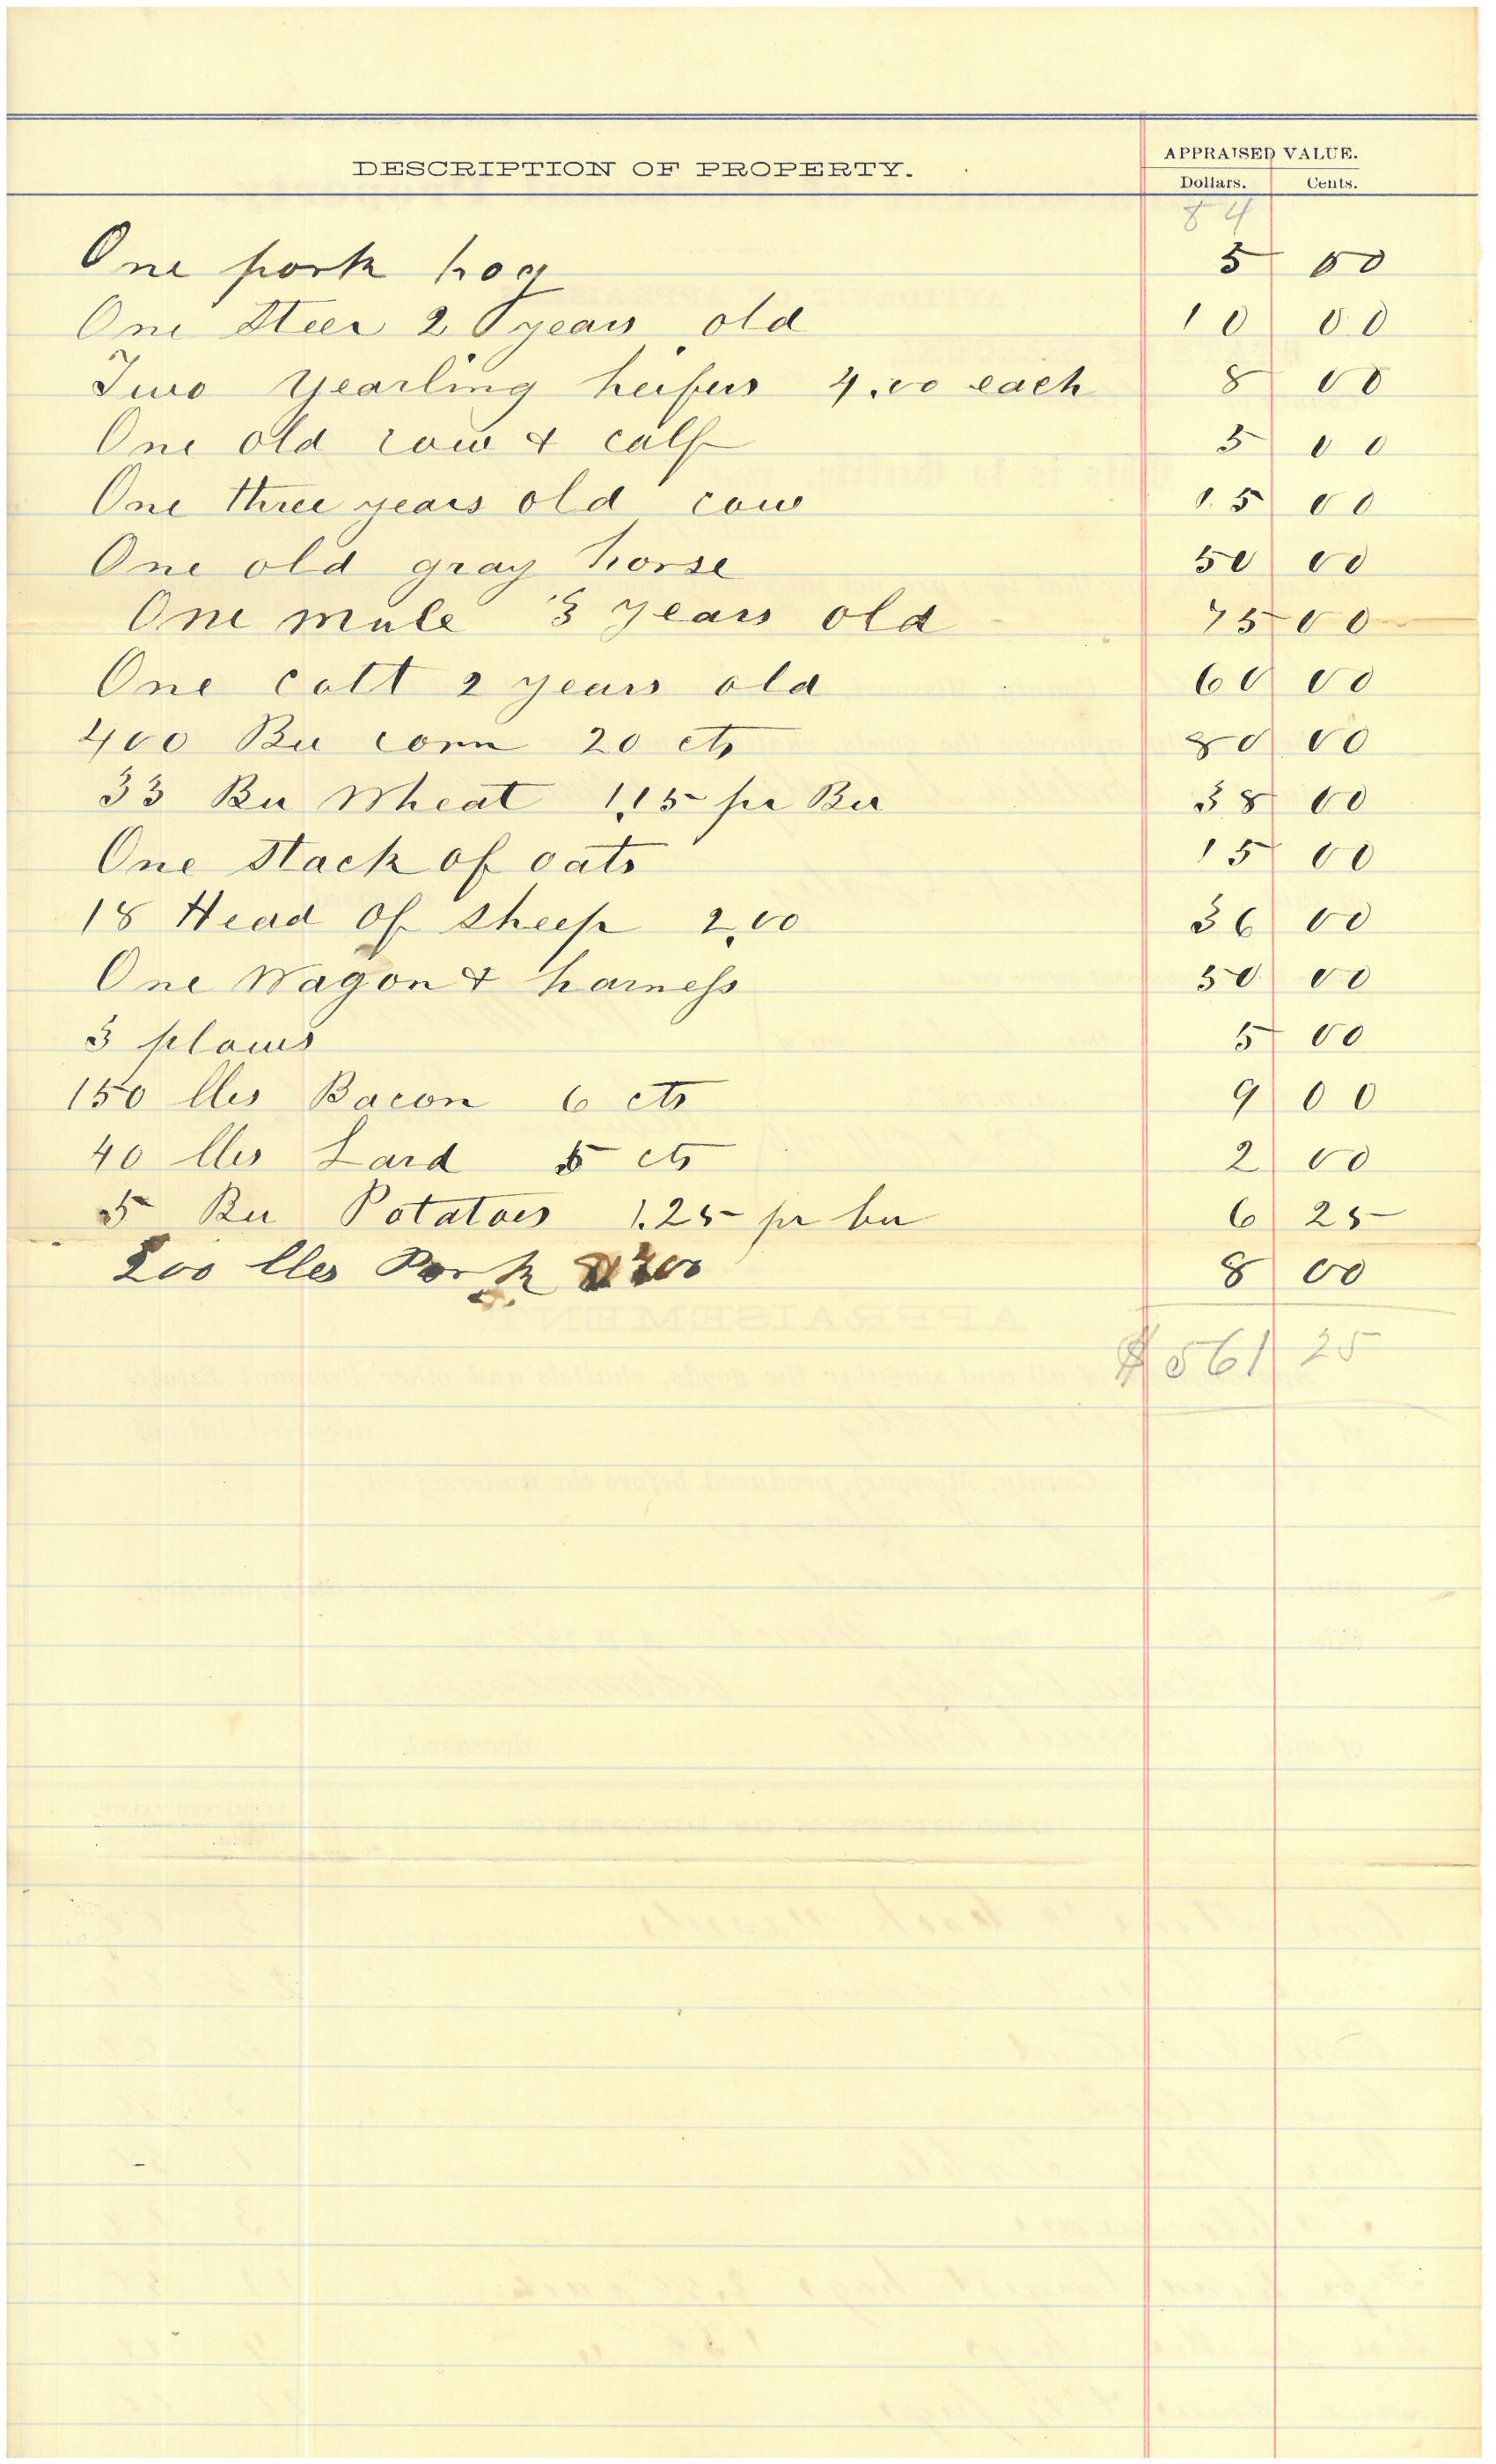 DESCRIPTION OF PROPERTY. APPRAISED VALUE.
Dollars. Cents.
84
One pork hog 5 00
One Steer 2 years old 10 00
Two Yearling heifers 4.00 each 8 00
One old cow & calf 5 00
One three years old cow 15 00
One old gray horse 50 00
One mule 3 years old 75 00
One colt 2 years old 60 00
400 Bu corn 20 cts 80 00
33 Bu Wheat 1.15 pr Bu 38 00
One Stack of oats 15 00
18 Head of sheep 2.00 36 00
One Wagon & harness 50 00
3 plows 5 00
150 lbs Bacon 6 cts 9 00
40 lbs Lard 5 cts 2 00
5 Bu Potatoes 1.25 pr bu 6 25
200 lbs Pork 8 00
$561 25